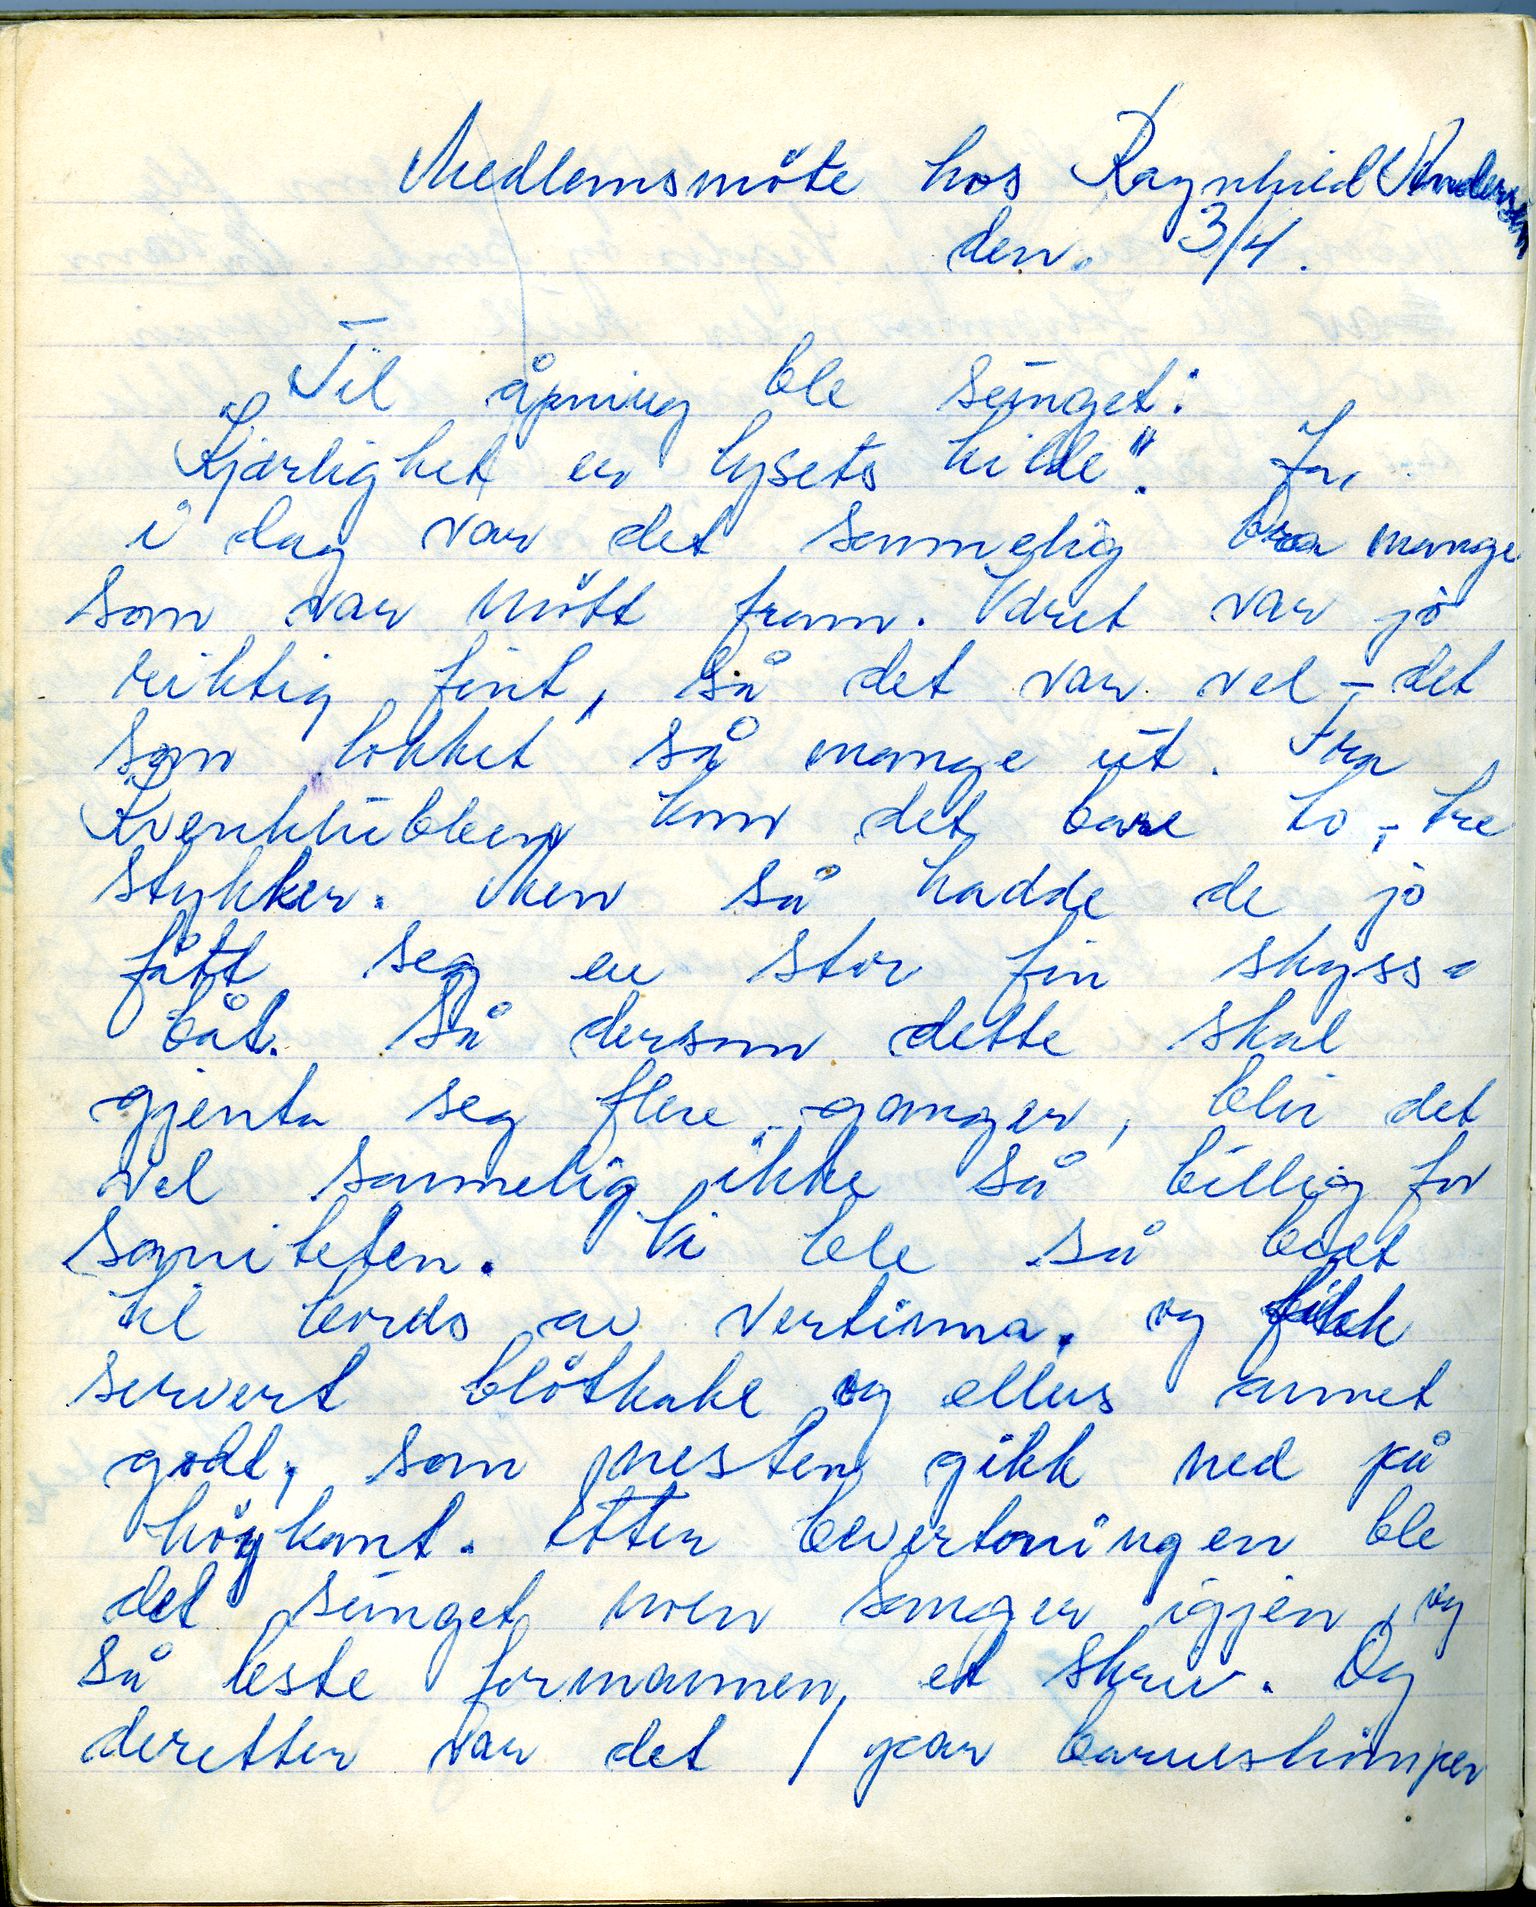 Medlemsmöte hos Ragnhild Andersen
den. 3/4.
Til åpning ble sunget:
"Kjærlighet er lysets kilde". Ja,
i dag var det sannelig bra mange
som var møtt fram. Været var jo
riktig fint, så det var vel - det
som lokket så mange ut. Fra
Kvenklubben kom det bare to, - tre
stykker. Men så hadde de jo
fått seg en stor fin skyss-
båt. Så dersom dette skal
gjenta seg flere ganger, blir det
vel sannelig ikke så billig for
saniteten. Vi ble så bedt
til bords av vertinna. og fikk
servert blötkake og ellers annet
godt, som nesten gikk ned på
höykant. Etter bevertningen ble
det sunget noen sanger igjen, og
så leste formannen, et skriv. Og
deretter var det 1 par barnestrømper